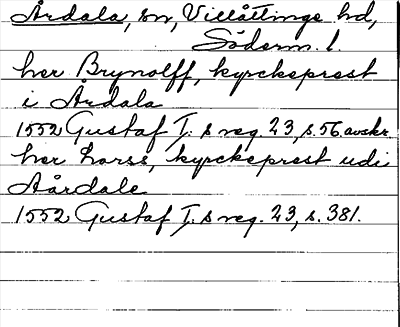 Årdala, sn, Villåttinge hd,
Söderm. l.
her Brynolff, kyrckeprest
i Årdala
1552 Gustaf I:s reg. 23, s. 56 avskr.
her Larss, kyrckeprest udi
Aårdale
1552 Gustaf I:s reg. 23, s. 381.